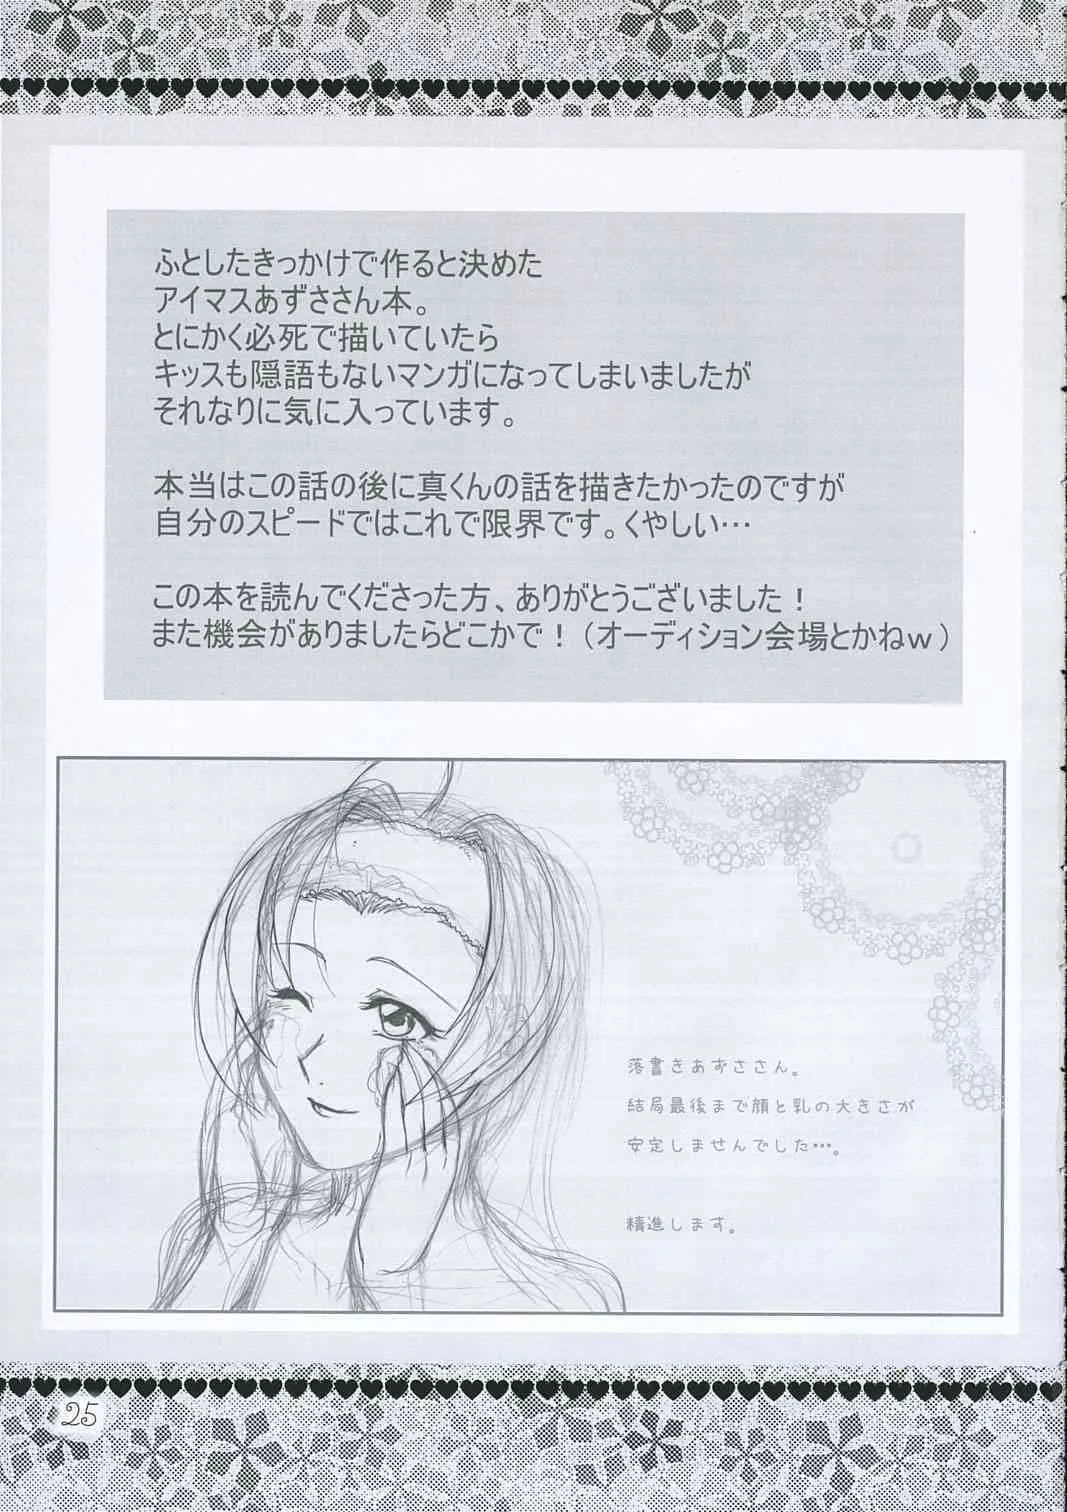 ふとしたきっかけで作ると決めた
アイマスあずささん本。
とにかく必死で描いていたら
キッスも隠語もないマンガになってしまいましたが
それなりに気に入っています。
本当はこの話の後に真くんの話を描きたかったのですが
自分のスピードではこれで限界です。くやしい…
この本を読んでくださった方、ありがとうございました！
また機会がありましたらどこかで！（オーディション会場とかねｗ）
落書きあずささん。
結局最後まで顔と乳の大きさが
安定しませんでした…。
精進します。
25